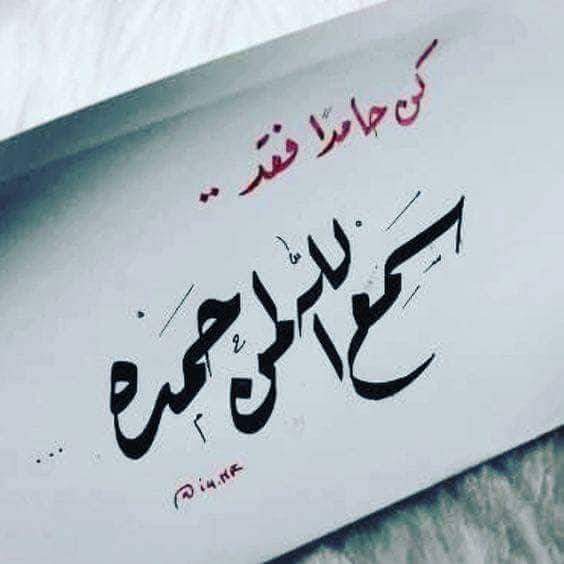 كن حامدًا فقد ..
سَمِعَ اللهُ لمن حَمدَه ...
@iu.HR